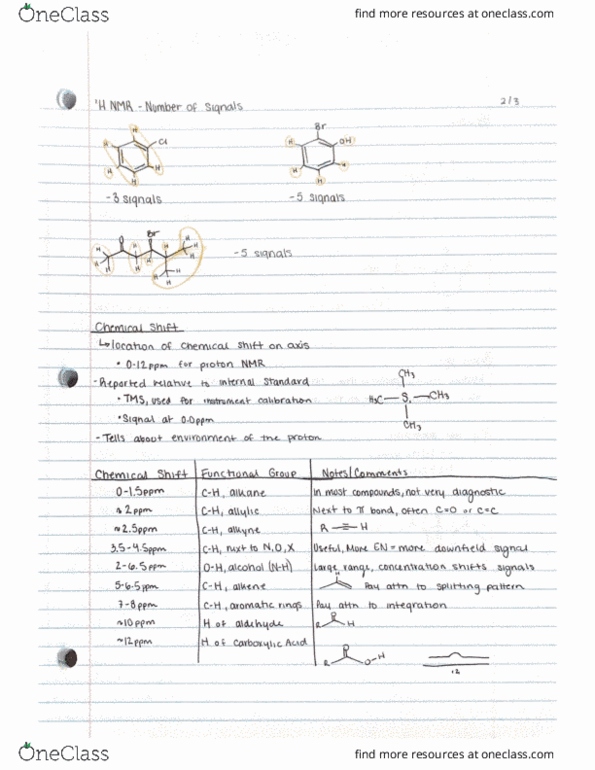 OneClass
find more resources at oneclass.com
¹H NMR - Number of Signals
2/3
H
Cl
H
H
H
H
Br
H
OH
H
H
H
-3 signals
-5 signals
O
Br
H
H
H
H
H
H
H
H
H
-5 signals
Chemical Shift
↳ location of chemical shift on axis
• 0-12ppm for proton NMR
- Reported relative to internal standard
• TMS, used for instrument calibration
• Signal at 0.0ppm
- Tells about environment of the proton
CH₃
H₃C — Si — CH₃
CH₃
Chemical Shift | Functional Group | Notes/Comments
0-1.5ppm | C-H, alkane | In most compounds, not very diagnostic
≈ 2ppm | C-H, allylic | Next to π bond, often C=O or C=C
≈ 2.5ppm | C-H, alkyne | R ≡ H
3.5-4.5ppm | C-H, next to N,O,X | Useful, More EN = more downfield signal
2-6.5ppm | O-H, alcohol (N-H) | Large range, concentration shifts signals
5-6.5ppm | C-H, alkene | H Pay attn to splitting pattern
7-8ppm | C-H, aromatic rings | Pay attn to integration
~10ppm | H of aldehyde | R O H
~12ppm | H of Carboxylic Acid | R O O-H
12
OneClass
find more resources at oneclass.com